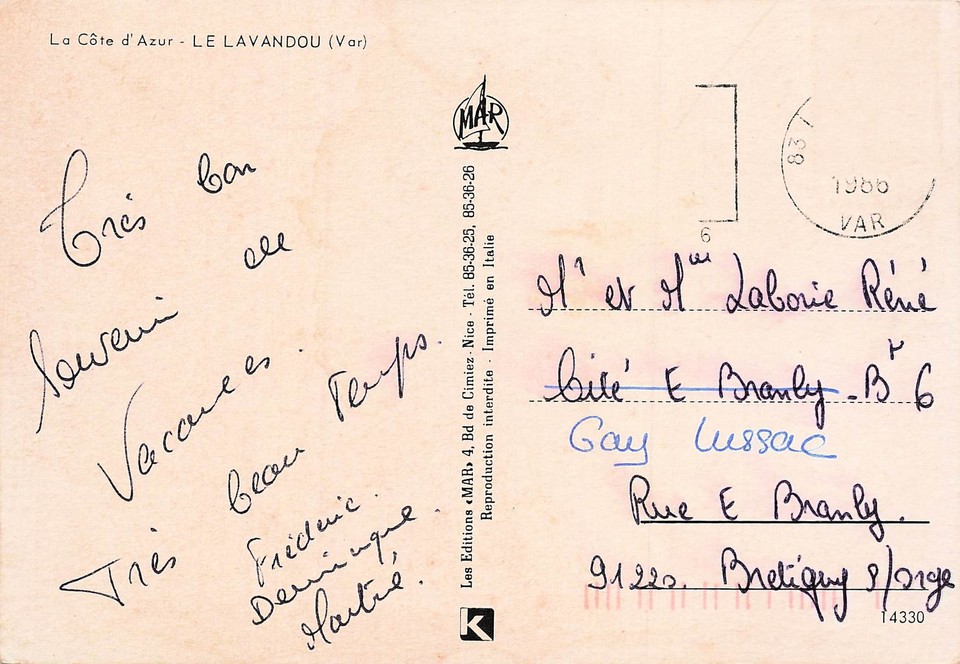 La Côte d'Azur - LE LAVANDOU (Var)
Très bon
souvenir de
Vacances.
Très beau Temps.
Frédéric
Dominique
Martré.
MAR
Les Editions «MAR» 4, Bd de Cimiez - Nice - Tél. 85-36-25, 85-36-26
Reproduction interdite - Imprimé en Italie
K
83
1986
VAR
6
Mr et Mme Laborie Réné
Cité E Branly - Bt 6
Gay Lussac
Rue E Branly.
91220. Bretigny s/orge
14330